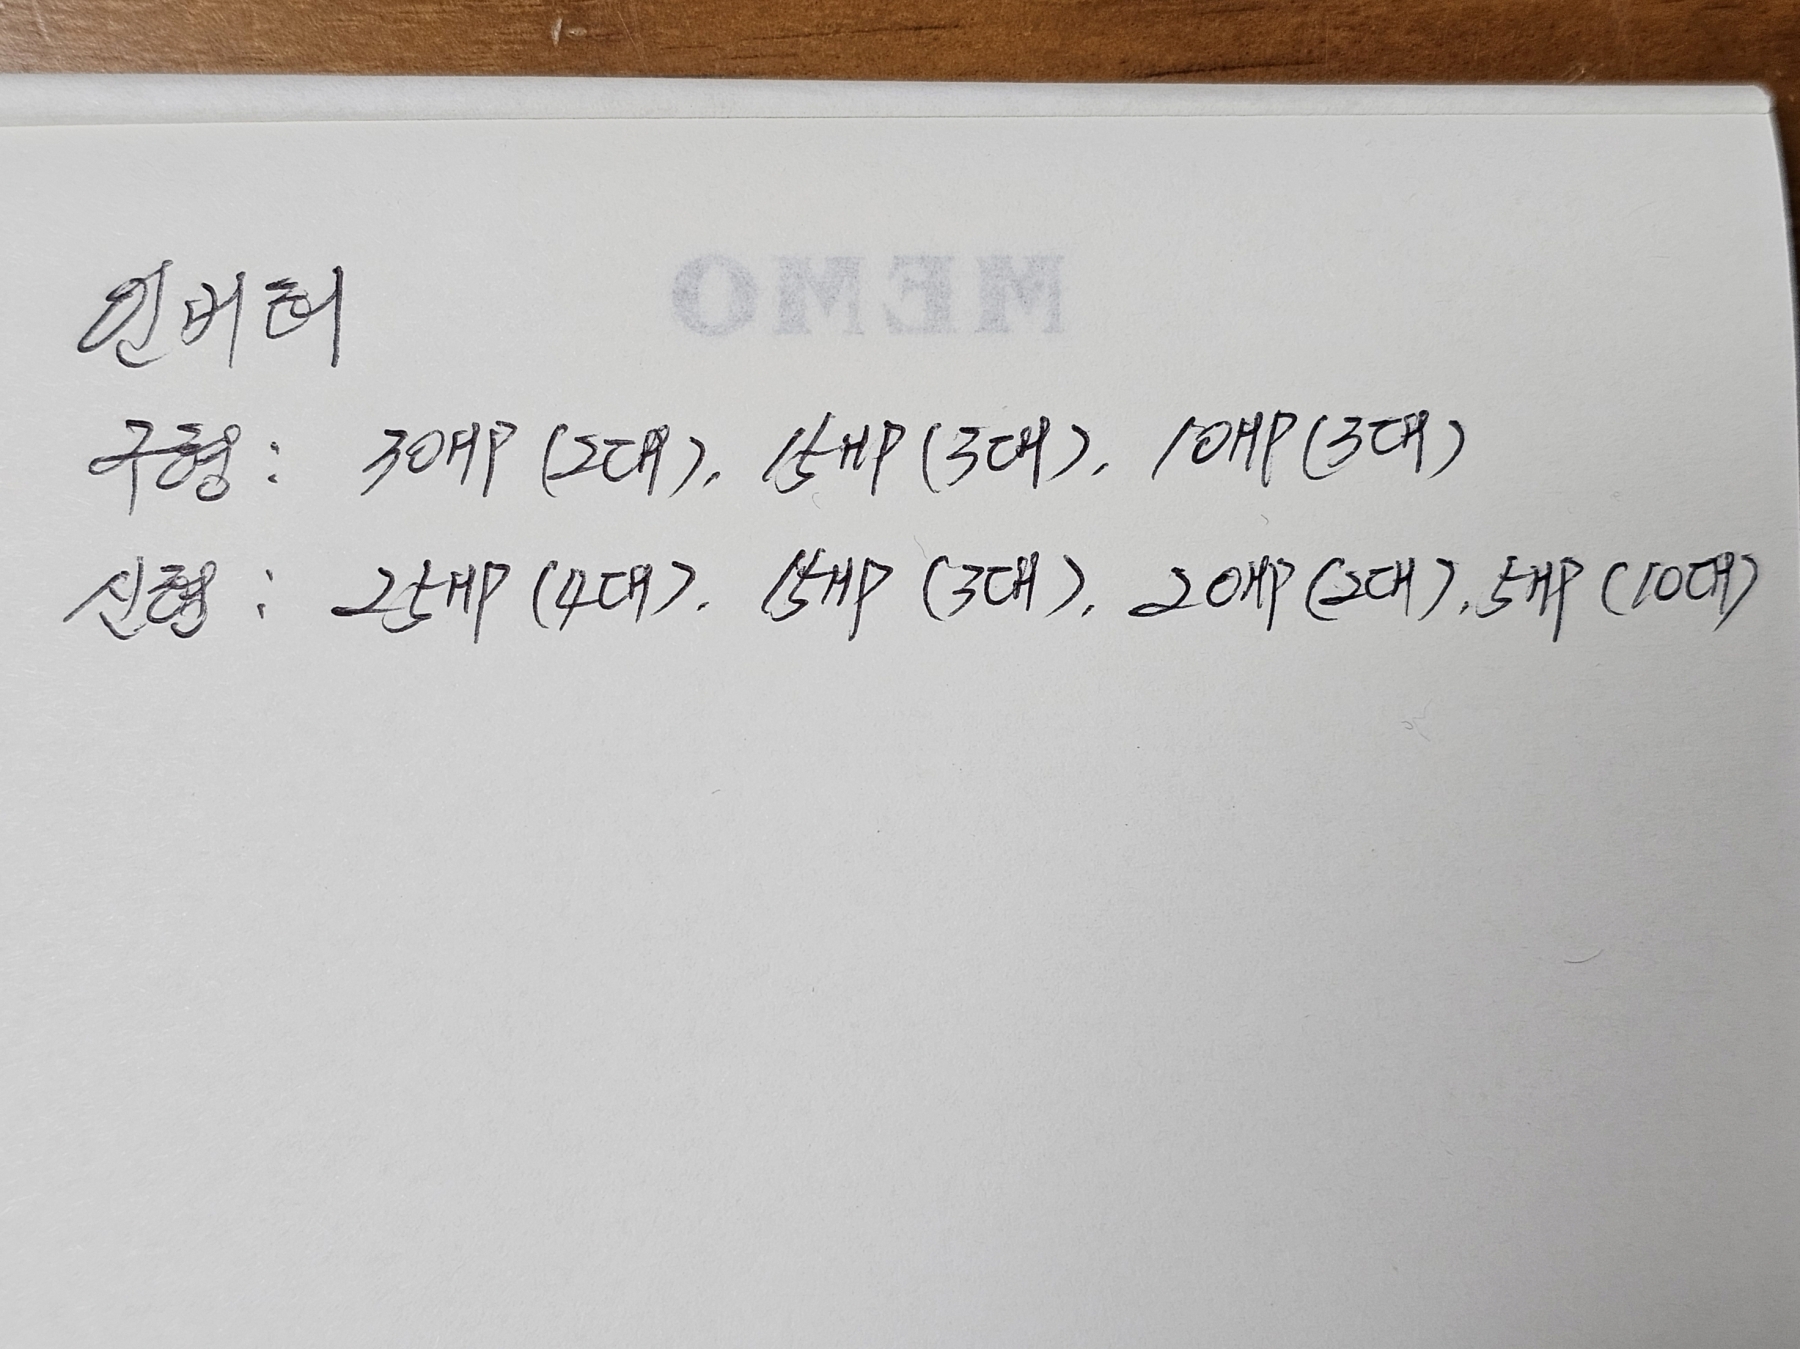 MEMO
인버터
구형 : 30HP (2대), 15HP (3대), 10HP (3대)
신형 : 25HP (4대), 15HP (3대), 20HP (2대), 5HP (10대)